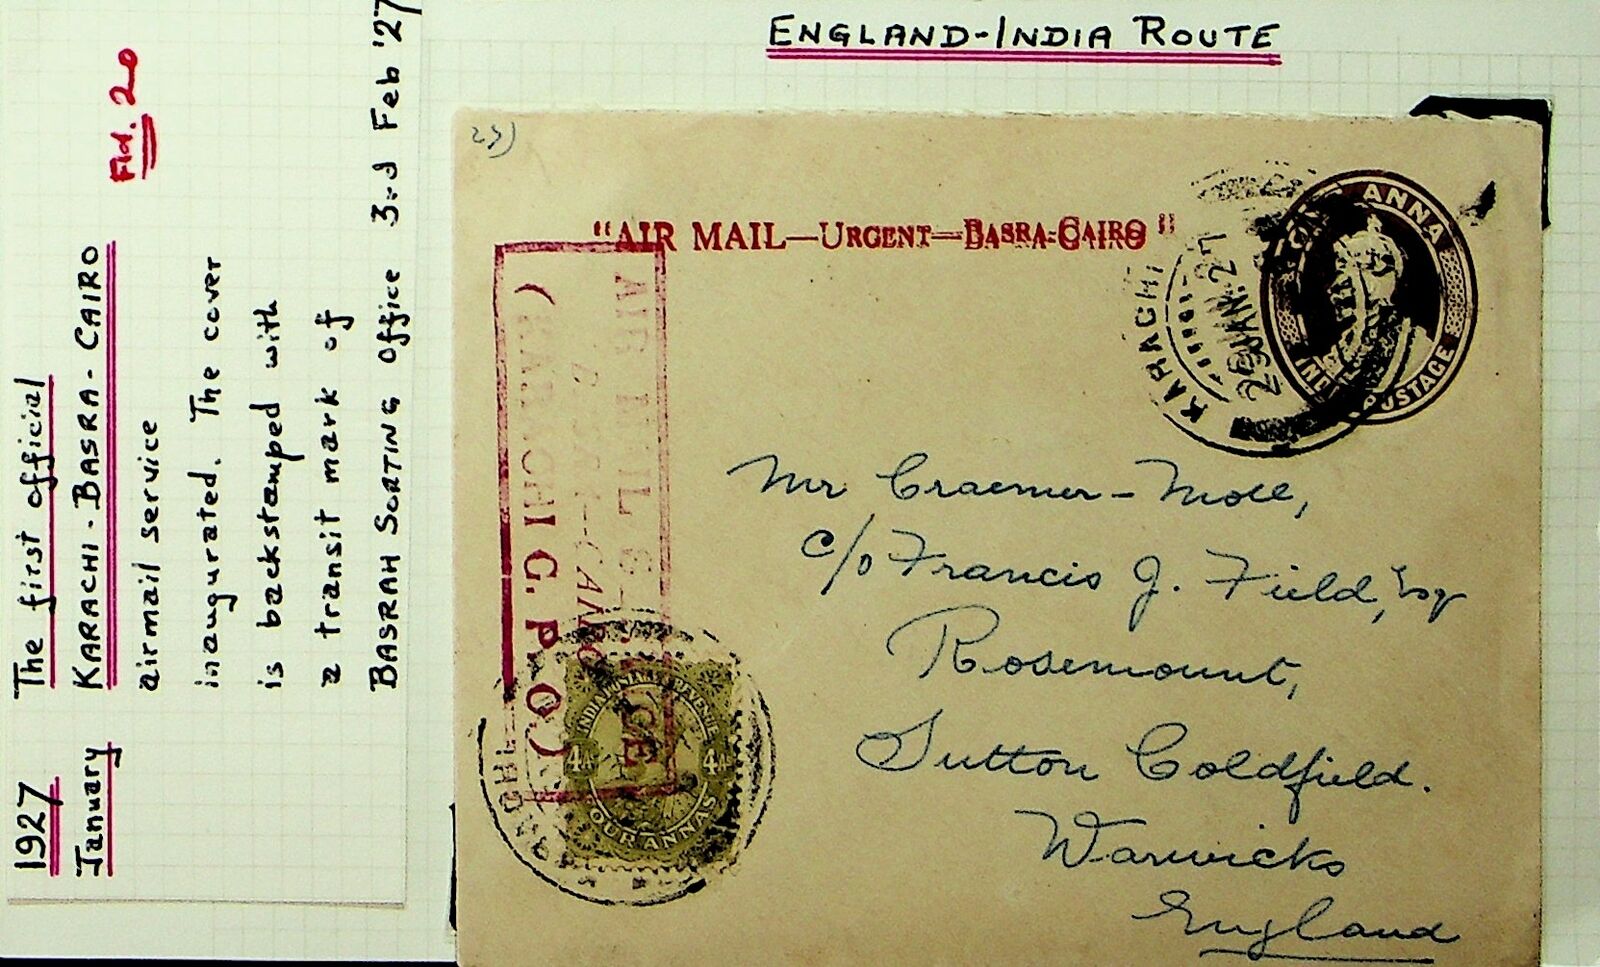 ENGLAND-INDIA ROUTE
1927 The first official
January KARACHI - BASRA - CAIRO
Fld. 20
airmail service
inaugurated. The cover
is backstamped with
a transit mark of
BASRAH SORTING office 3rd Feb '27
"AIR MAIL—URGENT—BASRA-CAIRO"
KARACHI
29 JAN. 27
ANNA
INDIA POSTAGE
AIR MAIL
(KARACHI G. P. O.)
INDIA REVENUE
4A 4A
FOUR ANNAS
KARACHI
Mr Craemer-Moll,
c/o Francis J. Field, Esq
Rosemount,
Sutton Coldfield.
Warwicks
England